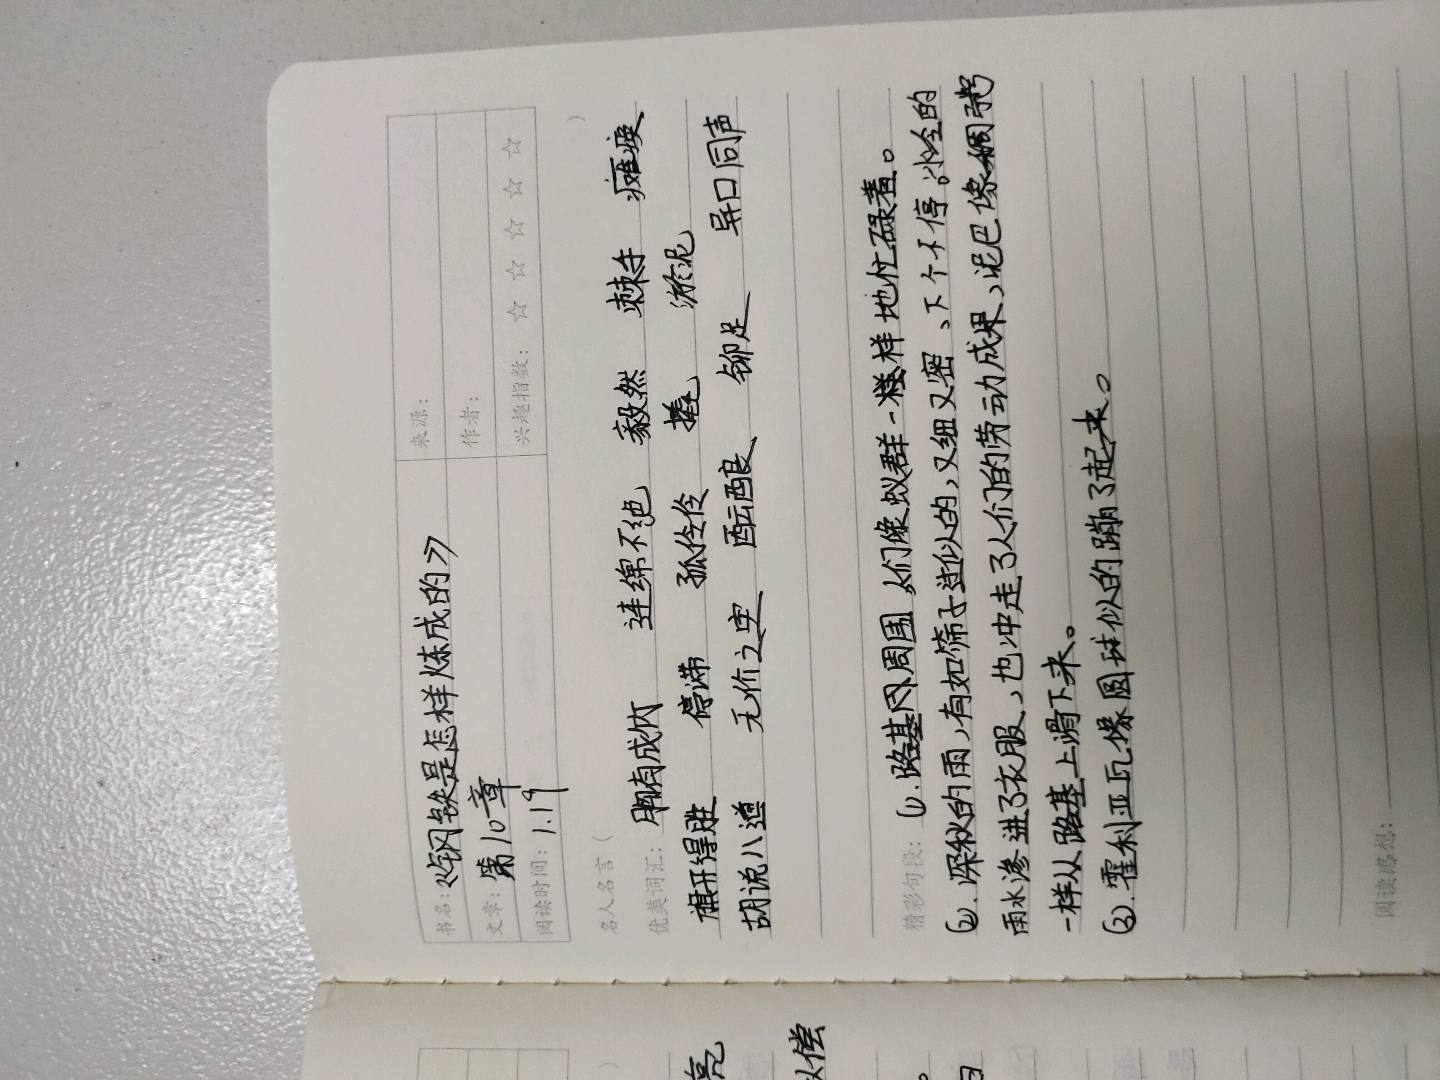 书名：《钢铁是怎样炼成的》 来源：
文章：第10章 作者：
阅读时间：1.19 兴趣指数：☆ ☆ ☆ ☆ ☆
名人名言（ ）
优美词汇：胸有成竹 连绵不绝 毅然 棘手 瘫痪
旗开得胜 停滞 孤伶伶 撬 淤泥
胡说八道 无价之宝 酝酿 铆足 异口同声
精彩句段：(1).路基周围人们像蚁群一样地忙碌着。
(2).深秋的雨,有如筛子过似的,又细又密、下个不停。冰冷的
雨水渗进了衣服、也冲走了人们的劳动成果、泥巴像稠粥
一样从路基上滑下来。
(3).霍利亚瓦像圆球似的蹦了起来。
阅读感想：
亮
以偿